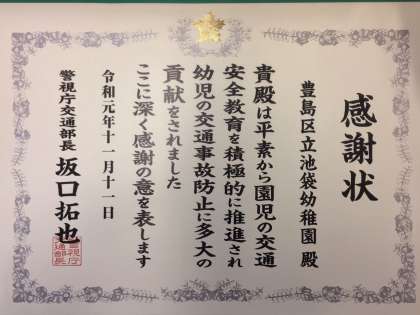 感謝状
豊島区立池袋幼稚園 殿
貴殿は平素から園児の交通
安全教育を積極的に推進され
幼児の交通事故防止に多大の
貢献をされました
ここに深く感謝の意を表します
令和元年十一月十一日
警視庁交通部長 坂口拓也
警視庁
交通部長